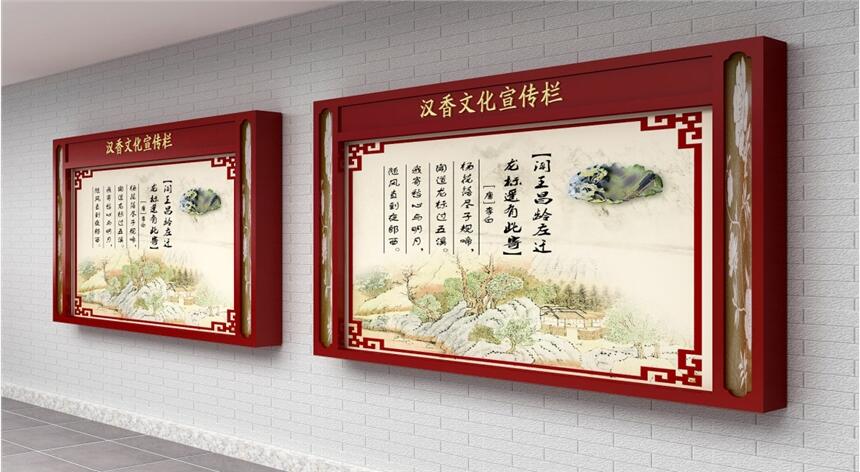 汉香文化宣传栏
【闻王昌龄左迁
龙标遥有此寄】
[唐] 李白
杨花落尽子规啼，
闻道龙标过五溪。
我寄愁心与明月，
随风直到夜郎西。
汉香文化宣传栏
【闻王昌龄左迁
龙标遥有此寄】
[唐] 李白
杨花落尽子规啼，
闻道龙标过五溪。
我寄愁心与明月，
随风直到夜郎西。